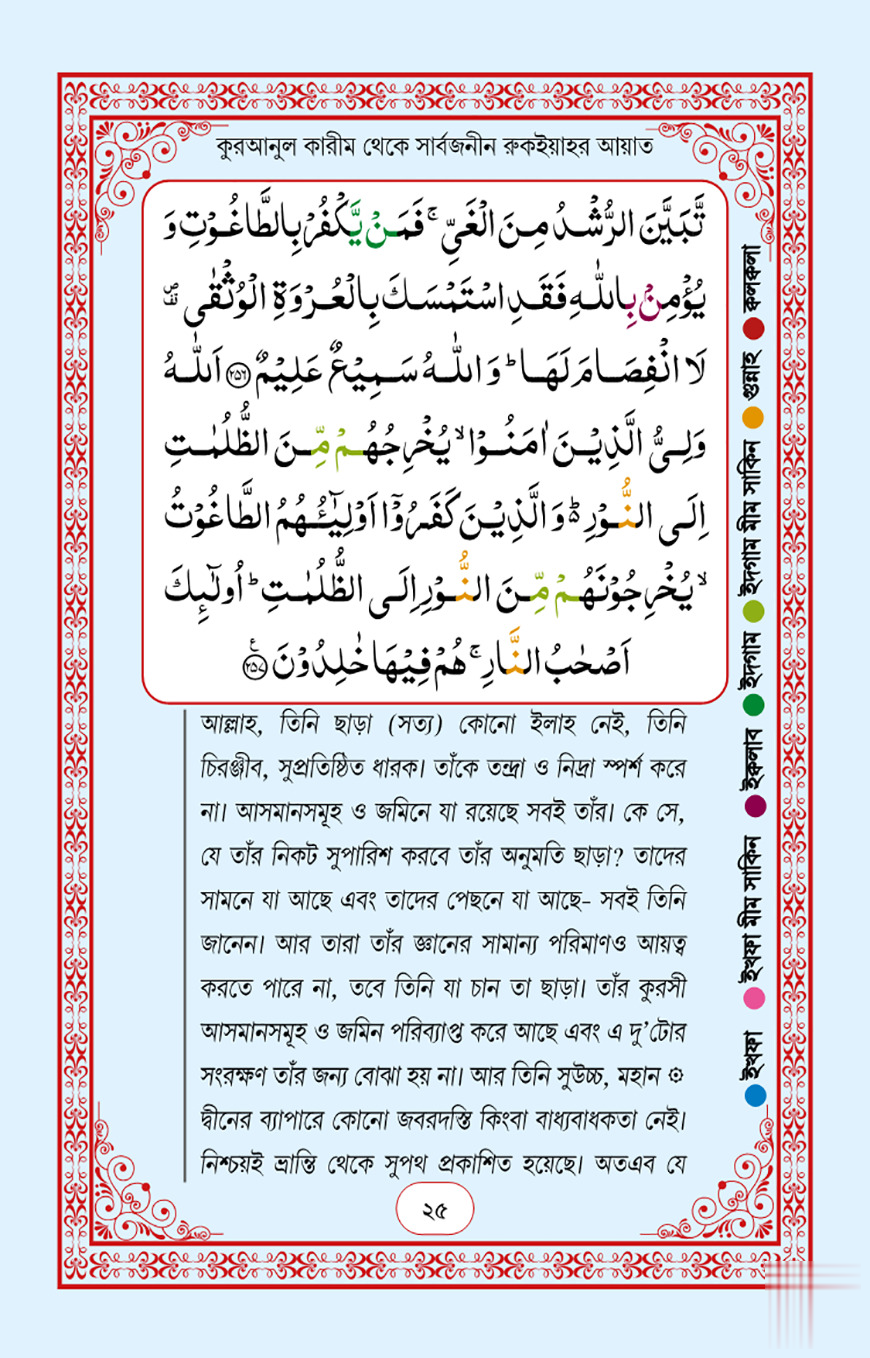 কুরআনুল কারীম থেকে সার্বজনীন রুকইয়াহর আয়াত
تَّبَيَّنَ الرُّشْدُ مِنَ الْغَيِّ ۚ فَمَنْ يَّكْفُرْ بِالطَّاغُوْتِ وَ
يُؤْمِنْۢ بِاللّٰهِ فَقَدِ اسْتَمْسَكَ بِالْعُرْوَةِ الْوُثْقٰى ۗ
لَا انْفِصَامَ لَهَا ؕ وَ اللّٰهُ سَمِيْعٌ عَلِيْمٌ ﴿۲۵۶﴾ اَللّٰهُ
وَلِيُّ الَّذِيْنَ اٰمَنُوْا ۙ يُخْرِجُهُمْ مِّنَ الظُّلُمٰتِ
اِلَى النُّوْرِ ۬ؕ وَ الَّذِيْنَ كَفَرُوْۤا اَوْلِيٰٓـُٔهُمُ الطَّاغُوْتُ
ۙ يُخْرِجُوْنَهُمْ مِّنَ النُّوْرِ اِلَى الظُّلُمٰتِ ؕ اُولٰٓئِكَ
اَصْحٰبُ النَّارِ ۚ هُمْ فِيْهَا خٰلِدُوْنَ ﴿۲۵۷﴾ ع
আল্লাহ, তিনি ছাড়া (সত্য) কোনো ইলাহ নেই, তিনি
চিরঞ্জীব, সুপ্রতিষ্ঠিত ধারক। তাঁকে তন্দ্রা ও নিদ্রা স্পর্শ করে
না। আসমানসমূহ ও জমিনে যা রয়েছে সবই তাঁর। কে সে,
যে তাঁর নিকট সুপারিশ করবে তাঁর অনুমতি ছাড়া? তাদের
সামনে যা আছে এবং তাদের পেছনে যা আছে- সবই তিনি
জানেন। আর তারা তাঁর জ্ঞানের সামান্য পরিমাণও আয়ত্ব
করতে পারে না, তবে তিনি যা চান তা ছাড়া। তাঁর কুরসী
আসমানসমূহ ও জমিন পরিব্যাপ্ত করে আছে এবং এ দু’টোর
সংরক্ষণ তাঁর জন্য বোঝা হয় না। আর তিনি সুউচ্চ, মহান ۞
দ্বীনের ব্যাপারে কোনো জবরদস্তি কিংবা বাধ্যবাধকতা নেই।
নিশ্চয়ই ভ্রান্তি থেকে সুপথ প্রকাশিত হয়েছে। অতএব যে
২৫
ইখফা ইখফা মীম সাকিন ইক্বলাব ইদগাম ইদগাম মীম সাকিন গুন্নাহ কলকলা